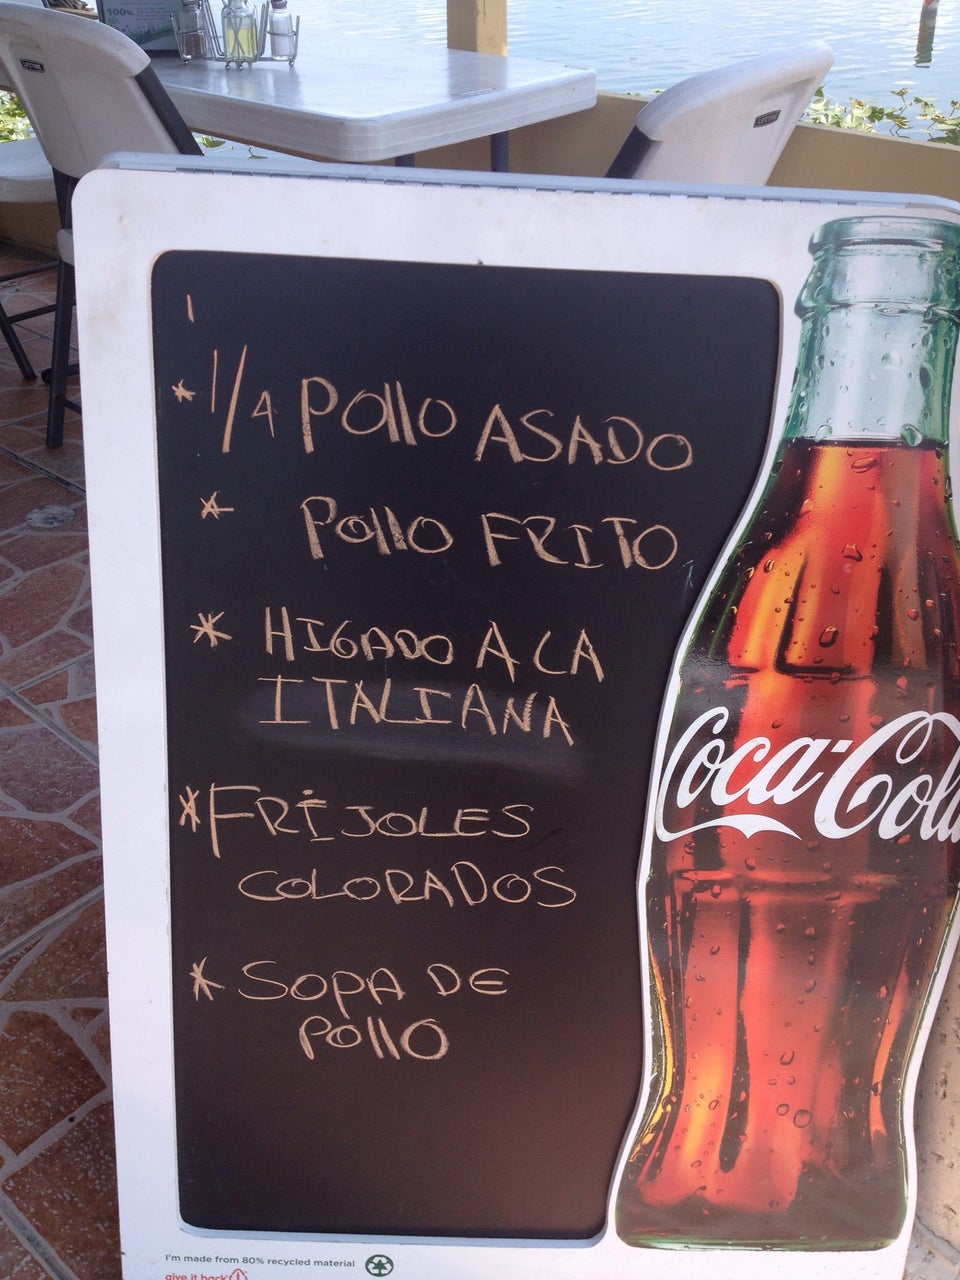 100%
LIFETIME
LIFETIME
* 1/4 POLLO ASADO
* POLLO FRITO
* HIGADO A LA
ITALIANA
* FRIJOLES
COLORADOS
* SOPA DE
POLLO
Coca-Cola
I'm made from 80% recycled material
give it back